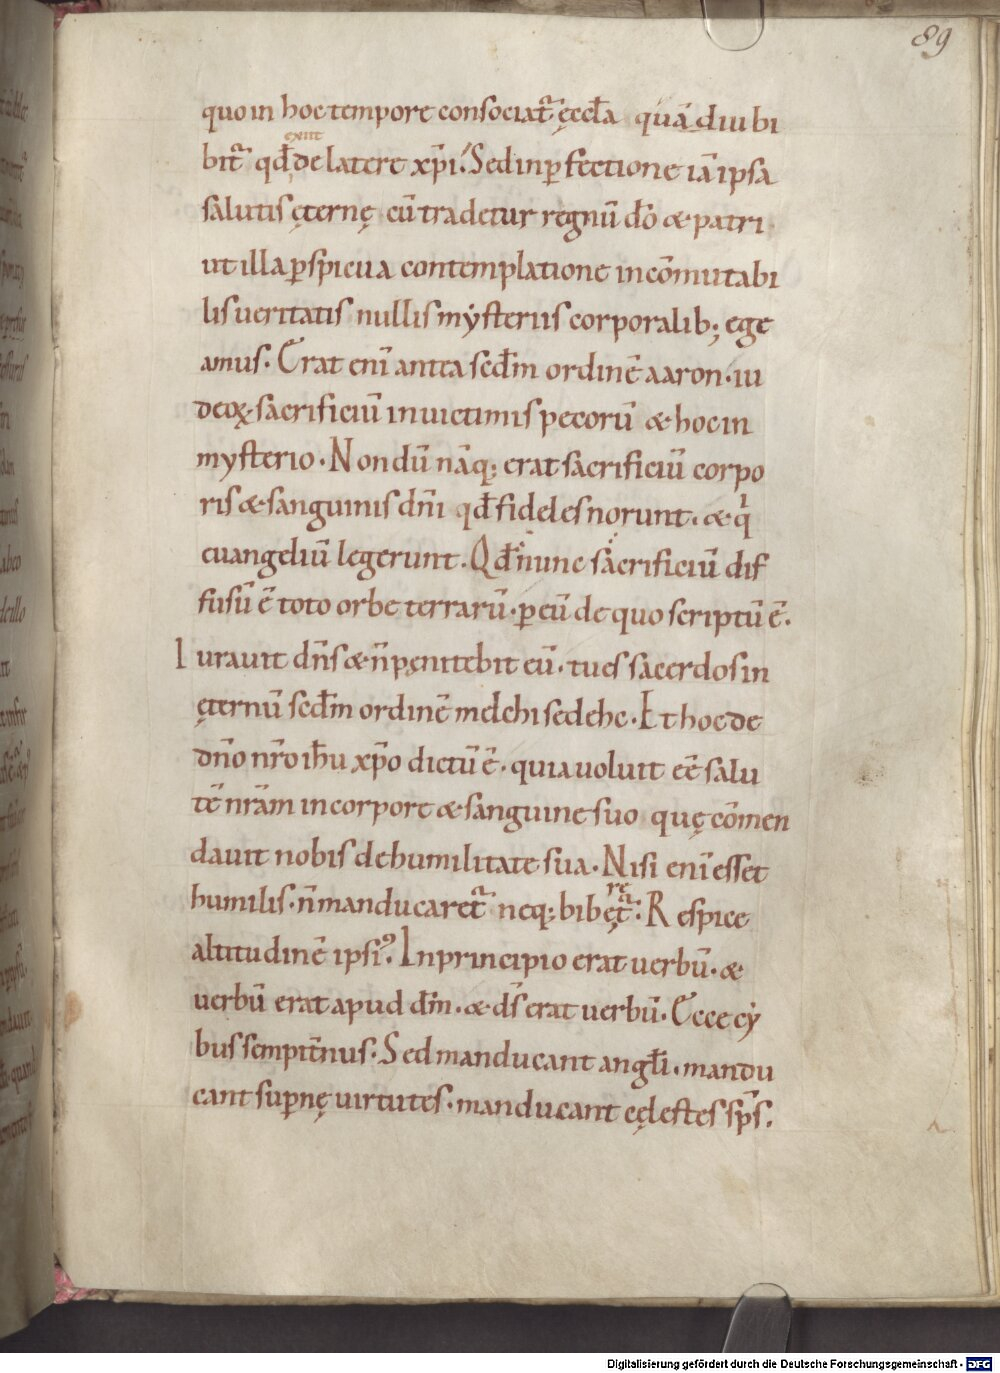 89
quo in hoc tempore consociat᷑ ęccl̅a quā diu bi
exiit
bit᷑ qd̅ de latere xp̅i. Sed in ꝑfectione iā ipsa
salutis ęternę cū tradetur regnū dō & patri
ut illa ꝑspicua contemplatione incōmutabi
lis ueritatis nullis mẏsteriis corporalib; ege
amus. Erat enī antea scd̅m ordinē aaron. iu
deoꝝ sacrificiū in uictimis pecorū & hoc in
mysterio. Nondū nāq; erat sacrificiū corpo
ris & sanguinis dn̅i qd̅ fideles norunt. & qⁱ
euangeliū legerunt. Qd̅ nunc sacrificiū dif
fusū ē toto orbe terrarū. ꝑ eū de quo scriptū ē.
Iurauit dn̅s & n̅ pęnitebit eū. tu es sacerdos in
ęternū scd̅m ordinē melchisedehc. Et hoc de
dn̅o nr̅o ih̅u xp̅o dictū ē. quia uoluit eē salu
tē nr̅am in corpore & sanguine suo quę cōmen
dauit nobis de humilitate sua. Nisi enī esset
humilis. n̅ manducaret᷑ neq; bibęt᷑. Respice
re
altitudinē ipsiꝰ. In principio erat uerbū. &
uerbū erat apud dm̅. & ds̅ erat uerbū. Ecce cẏ
bus sempit̅nus. Sed manducant angl̅i. mandu
cant sup̅nę uirtutes. manducant cęlestes sp̅s.
Digitalisierung gefördert durch die Deutsche Forschungsgemeinschaft - DFG